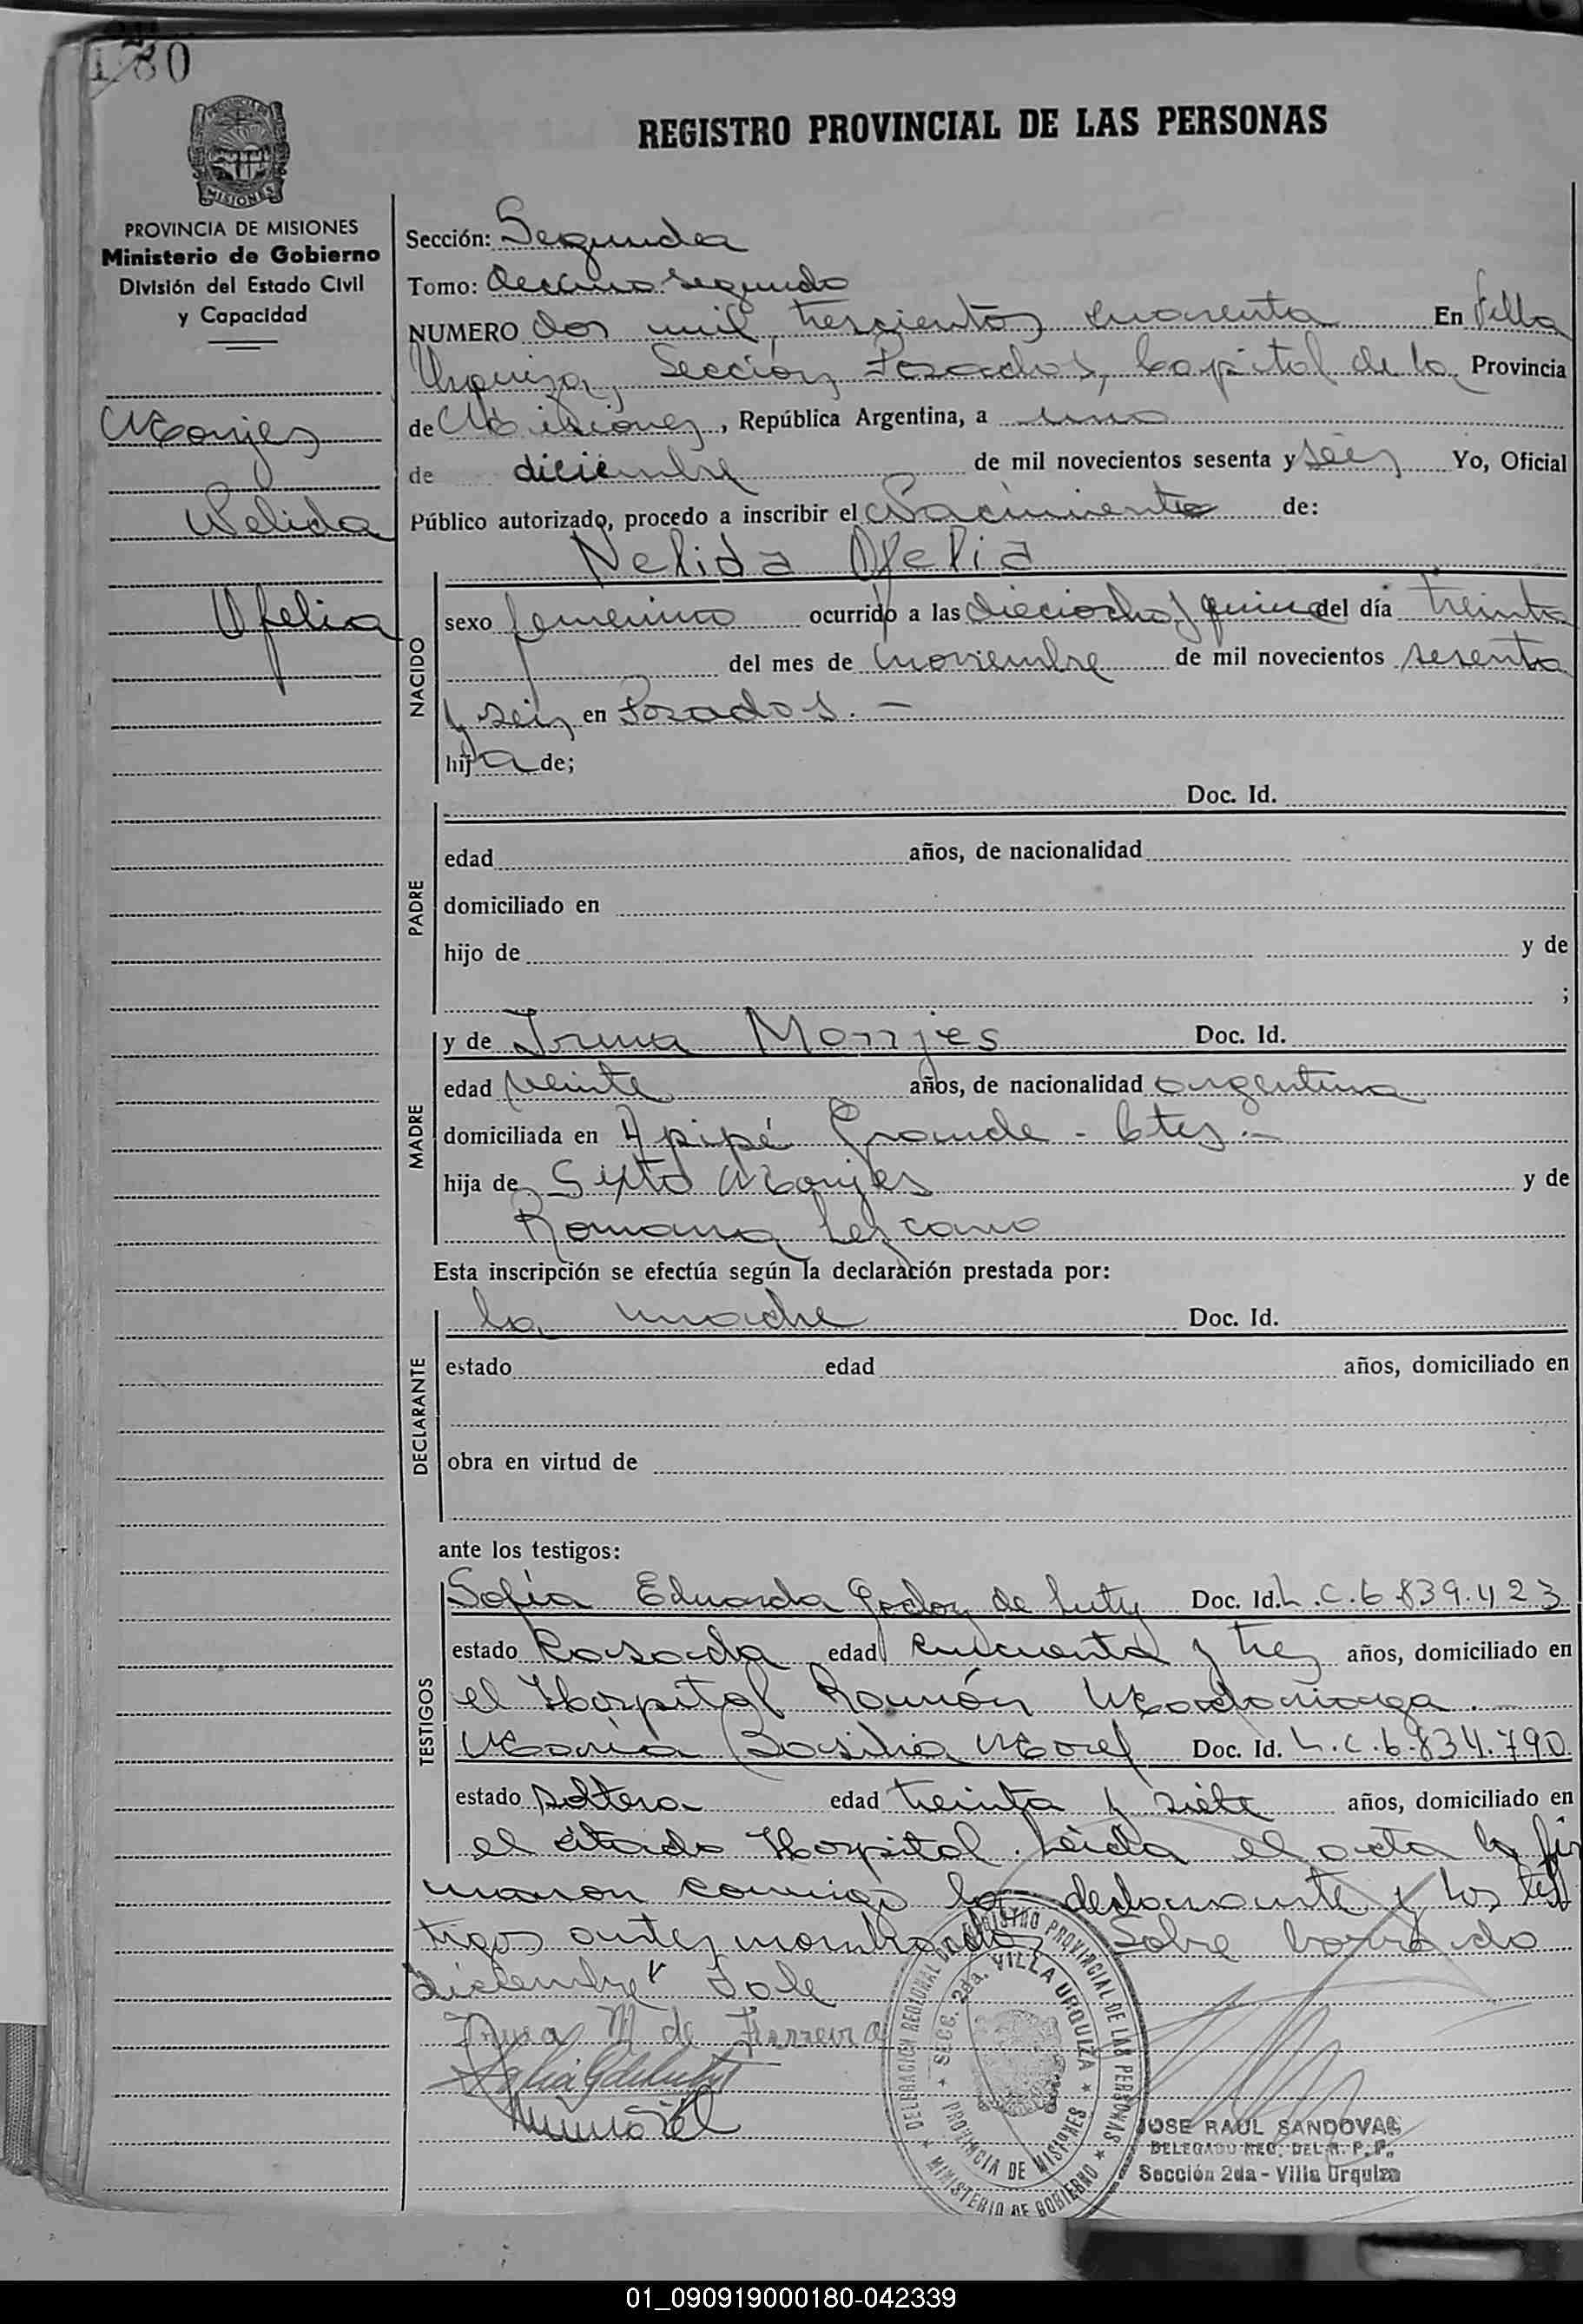 180
REGISTRO PROVINCIAL DE LAS PERSONAS
MISIONES
PROVINCIA DE MISIONES
Ministerio de Gobierno
División del Estado Civil
y Capacidad
Monjes
Nelida
Ofelia
Sección: Segunda
Tomo: Decimo segundo
NUMERO dos mil trescientos cuarenta En Villa
Urquiza, Sección Posadas, Capital de la Provincia
de Misiones, República Argentina, a uno
de diciembre de mil novecientos sesenta y seis Yo, Oficial
Público autorizado, procedo a inscribir el Nacimiento de:
Nelida Ofelia
NACIDO
sexo femenino ocurrido a las dieciocho y quince del día treinta
del mes de noviembre de mil novecientos sesenta
y seis en Posadas. —
hija de;
PADRE
Doc. Id.
edad años, de nacionalidad
domiciliado en
hijo de y de
;
MADRE
y de Irma Monjes Doc. Id.
edad veinte años, de nacionalidad argentina
domiciliada en Apipé Grande - Ctes. -
hija de Sixto Monjes y de
Romana Lezcano
Esta inscripción se efectúa según la declaración prestada por:
DECLARANTE
la madre Doc. Id.
estado edad años, domiciliado en
obra en virtud de
ante los testigos:
TESTIGOS
Sofía Eduarda Godoy de Luty Doc. Id. L.C.6.839.423
estado Casada edad cincuenta y tres años, domiciliado en
el Hospital Ramón Madariaga. —
María Basilia Morel Doc. Id. L.C.6.834.790
estado soltera edad treinta y siete años, domiciliado en
el citado Hospital. Leída el acta la fir
maron conmigo la declarante y los tes
tigos antes nombrados Sobre borrado
diciembre" Vale
Irma M de Ferreira
DELEGACION REGIONAL DEL REGISTRO PROVINCIAL DE LAS PERSONAS
SECC. 2da. VILLA URQUIZA
PROVINCIA DE MISIONES
MINISTERIO DE GOBIERNO
JOSE RAUL SANDOVAL
DELEGADO REG. DEL R. P. P.
Sección 2da - Villa Urquiza
01_090919000180-042339